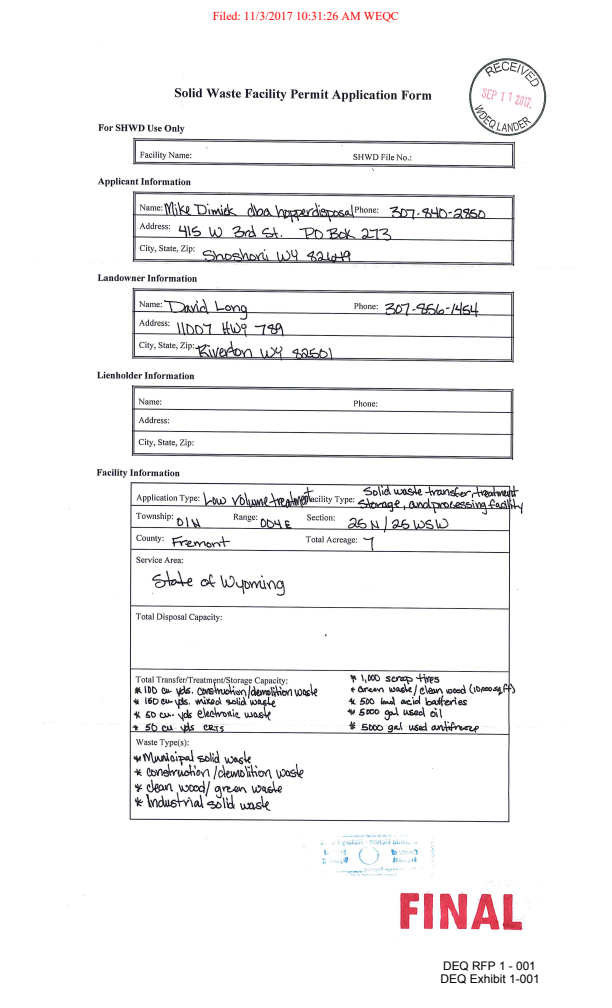 Filed: 11/3/2017 10:31:26 AM WEQC
RECEIVED
SEP 11 2017
WDEQ LANDER
Solid Waste Facility Permit Application Form
For SHWD Use Only
Facility Name: SHWD File No.:
Applicant Information
Name: Mike Dimick dba hopperdisposal Phone: 307-840-2850
Address: 415 W 3rd St. PO Box 273
City, State, Zip: Shoshoni WY 82649
Landowner Information
Name: David Long Phone: 307-856-1454
Address: 11007 HWY 789
City, State, Zip: Riverton WY 82501
Lienholder Information
Name: Phone:
Address:
City, State, Zip:
Facility Information
Application Type: Low volume treatment Facility Type: Solid waste transfer, treatment
storage, and processing facility
Township: 01N Range: 004E Section: 25 N / 25 WSW
County: Fremont Total Acreage: 7
Service Area:
State of Wyoming
Total Disposal Capacity:
Total Transfer/Treatment/Storage Capacity: * 1,000 scrap tires
* 100 cu. yds. construction/demolition waste * Green waste/clean wood (10,000 sq ft)
* 150 cu. yds. mixed solid waste * 500 lead acid batteries
* 50 cu. yds electronic waste * 5000 gal used oil
* 50 cu. yds CRTS * 5000 gal used antifreeze
Waste Type(s):
* Municipal solid waste
* construction/demolition waste
* clean wood/green waste
* Industrial solid waste
FINAL
DEQ RFP 1 - 001
DEQ Exhibit 1-001